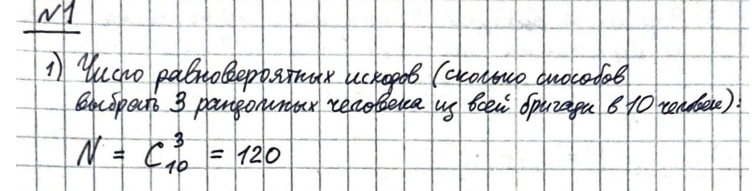 №1
1) Число равновероятных исходов (сколько способов
выбрать 3 рандомных человека из всей бригады в 10 человек):
N = C₁₀³ = 120